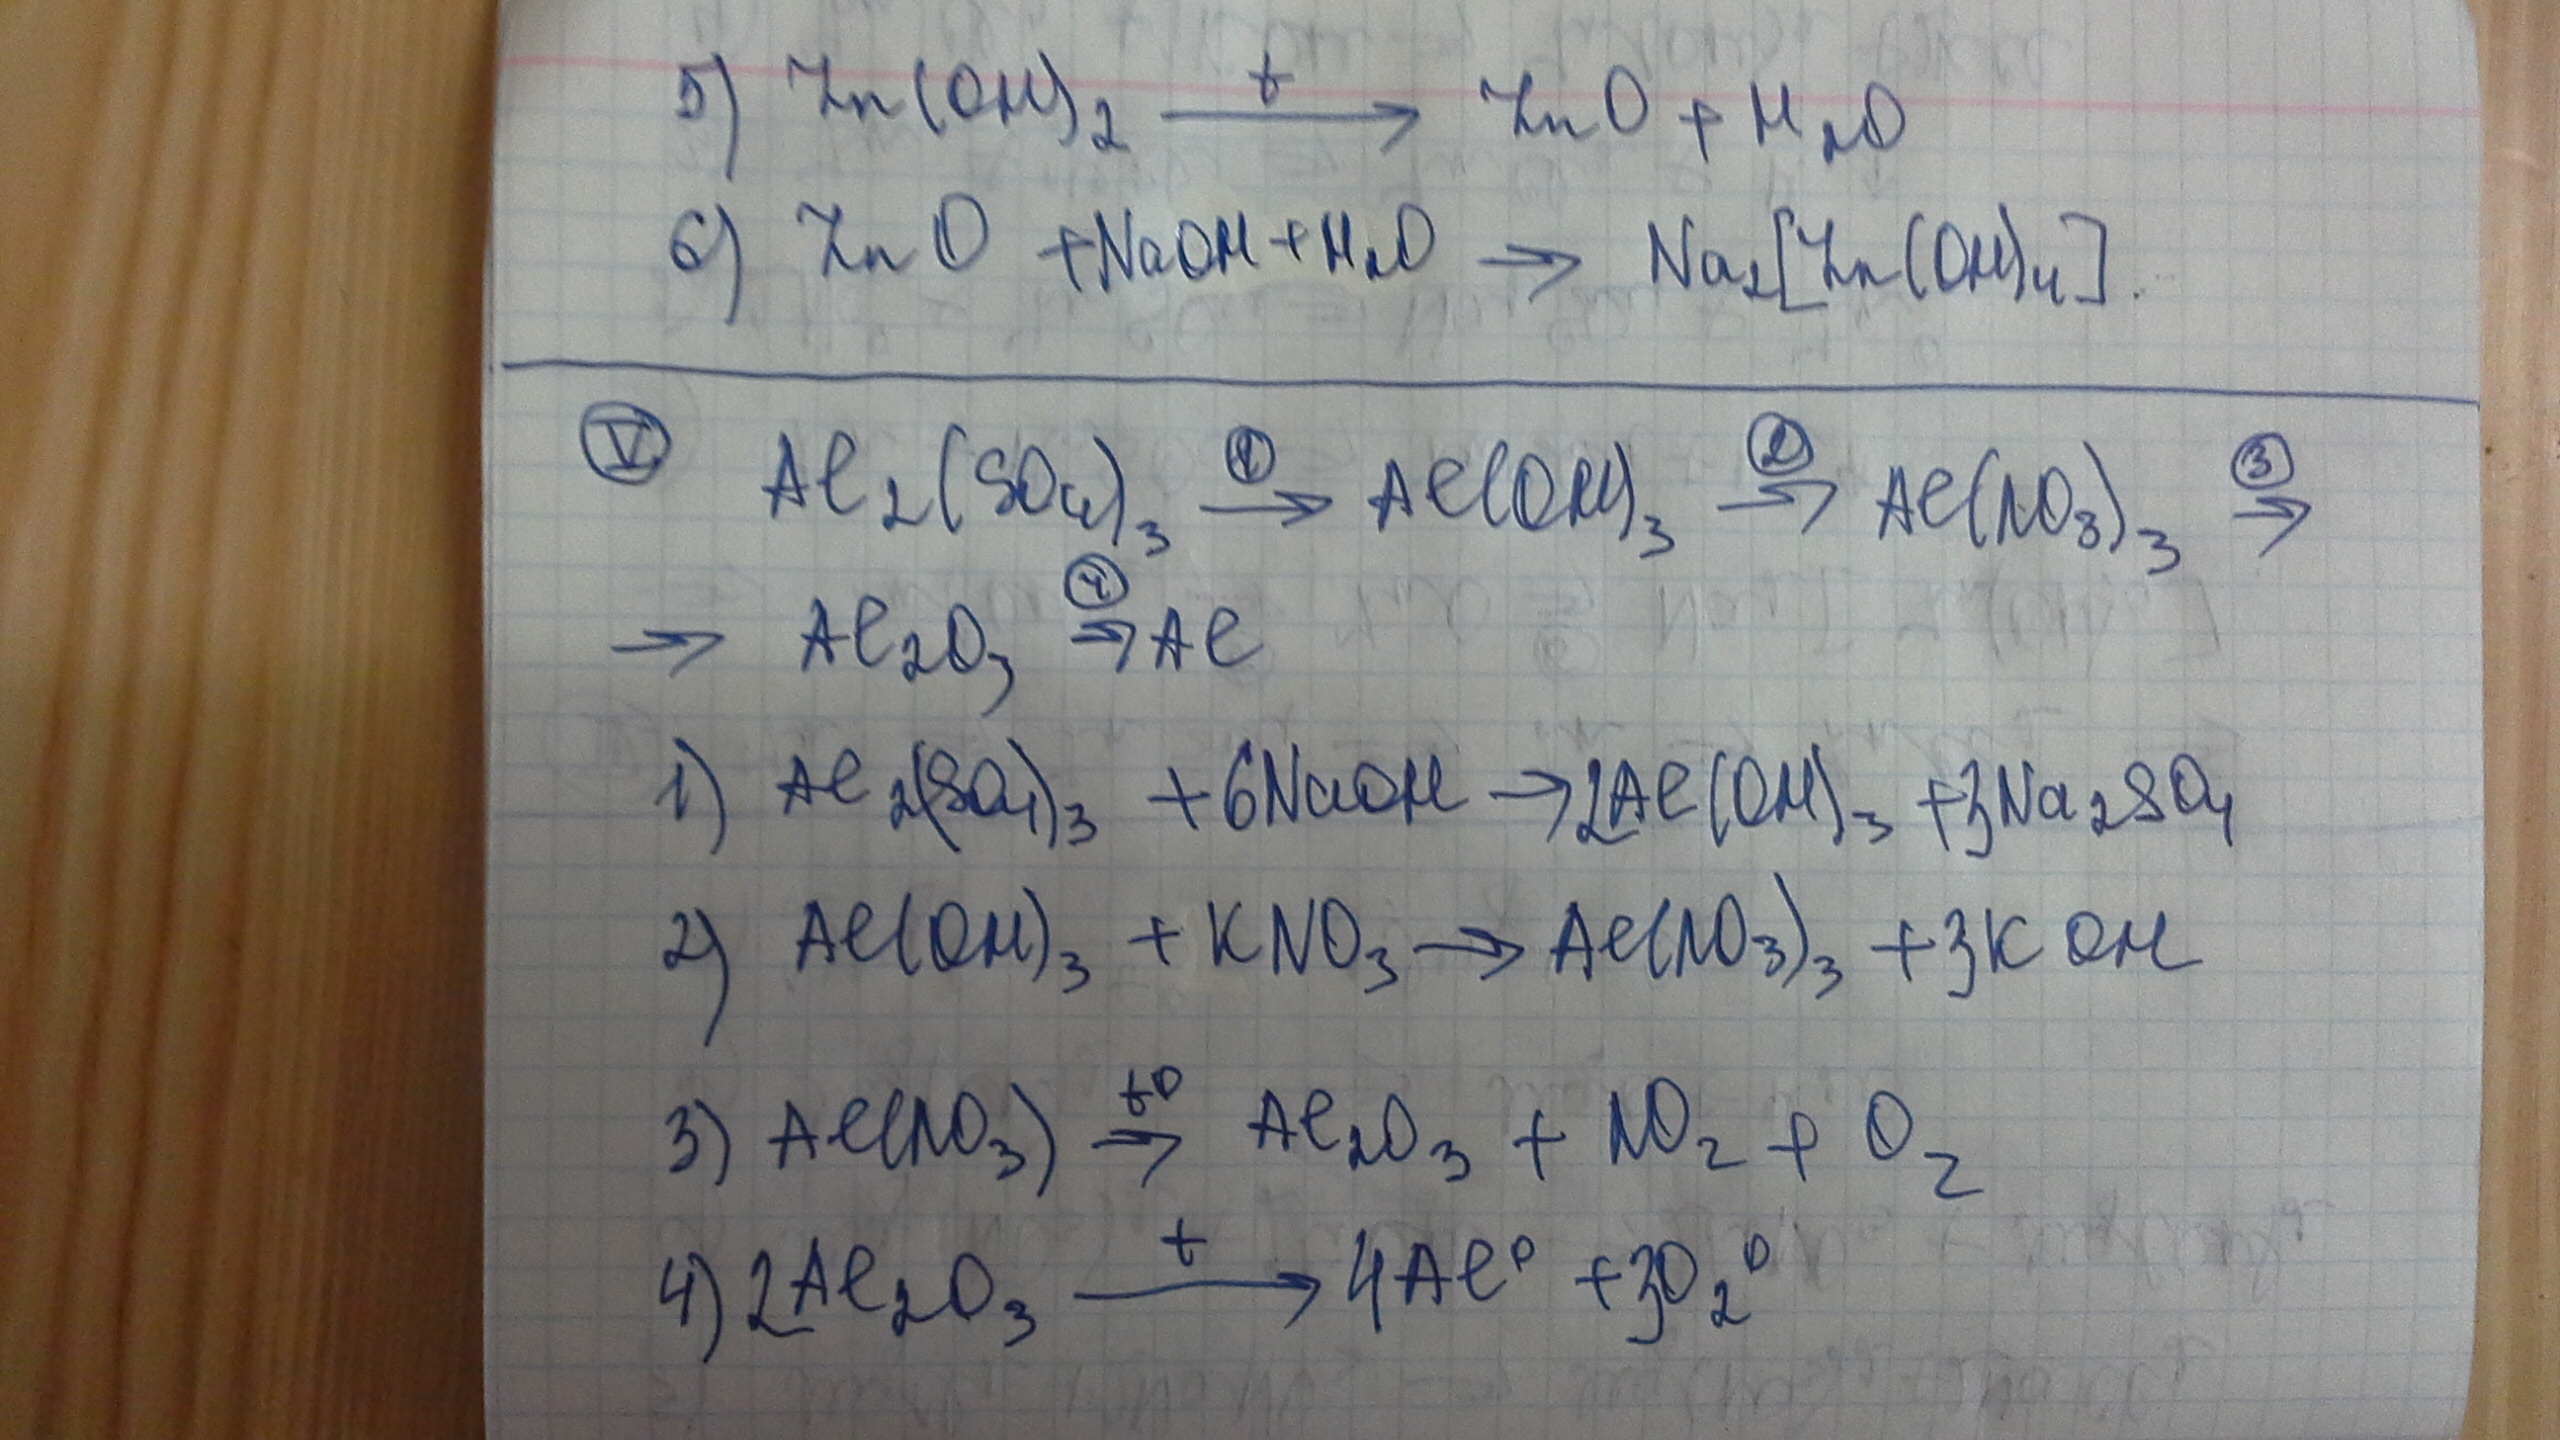 5) Zn(OH)₂ —t→ ZnO + H₂O
6) ZnO + NaOH + H₂O → Na₂[Zn(OH)₄].
Ⓥ Al₂(SO₄)₃ —①→ Al(OH)₃ —②→ Al(NO₃)₃ —③→
→ Al₂O₃ —④→ Al
1) Al₂(SO₄)₃ + 6NaOH → 2Al(OH)₃ + 3Na₂SO₄
2) Al(OH)₃ + KNO₃ → Al(NO₃)₃ + 3KOH
3) Al(NO₃) —t⁰→ Al₂O₃ + NO₂ + O₂
4) 2Al₂O₃ —t→ 4Al⁰ + 3O₂⁰